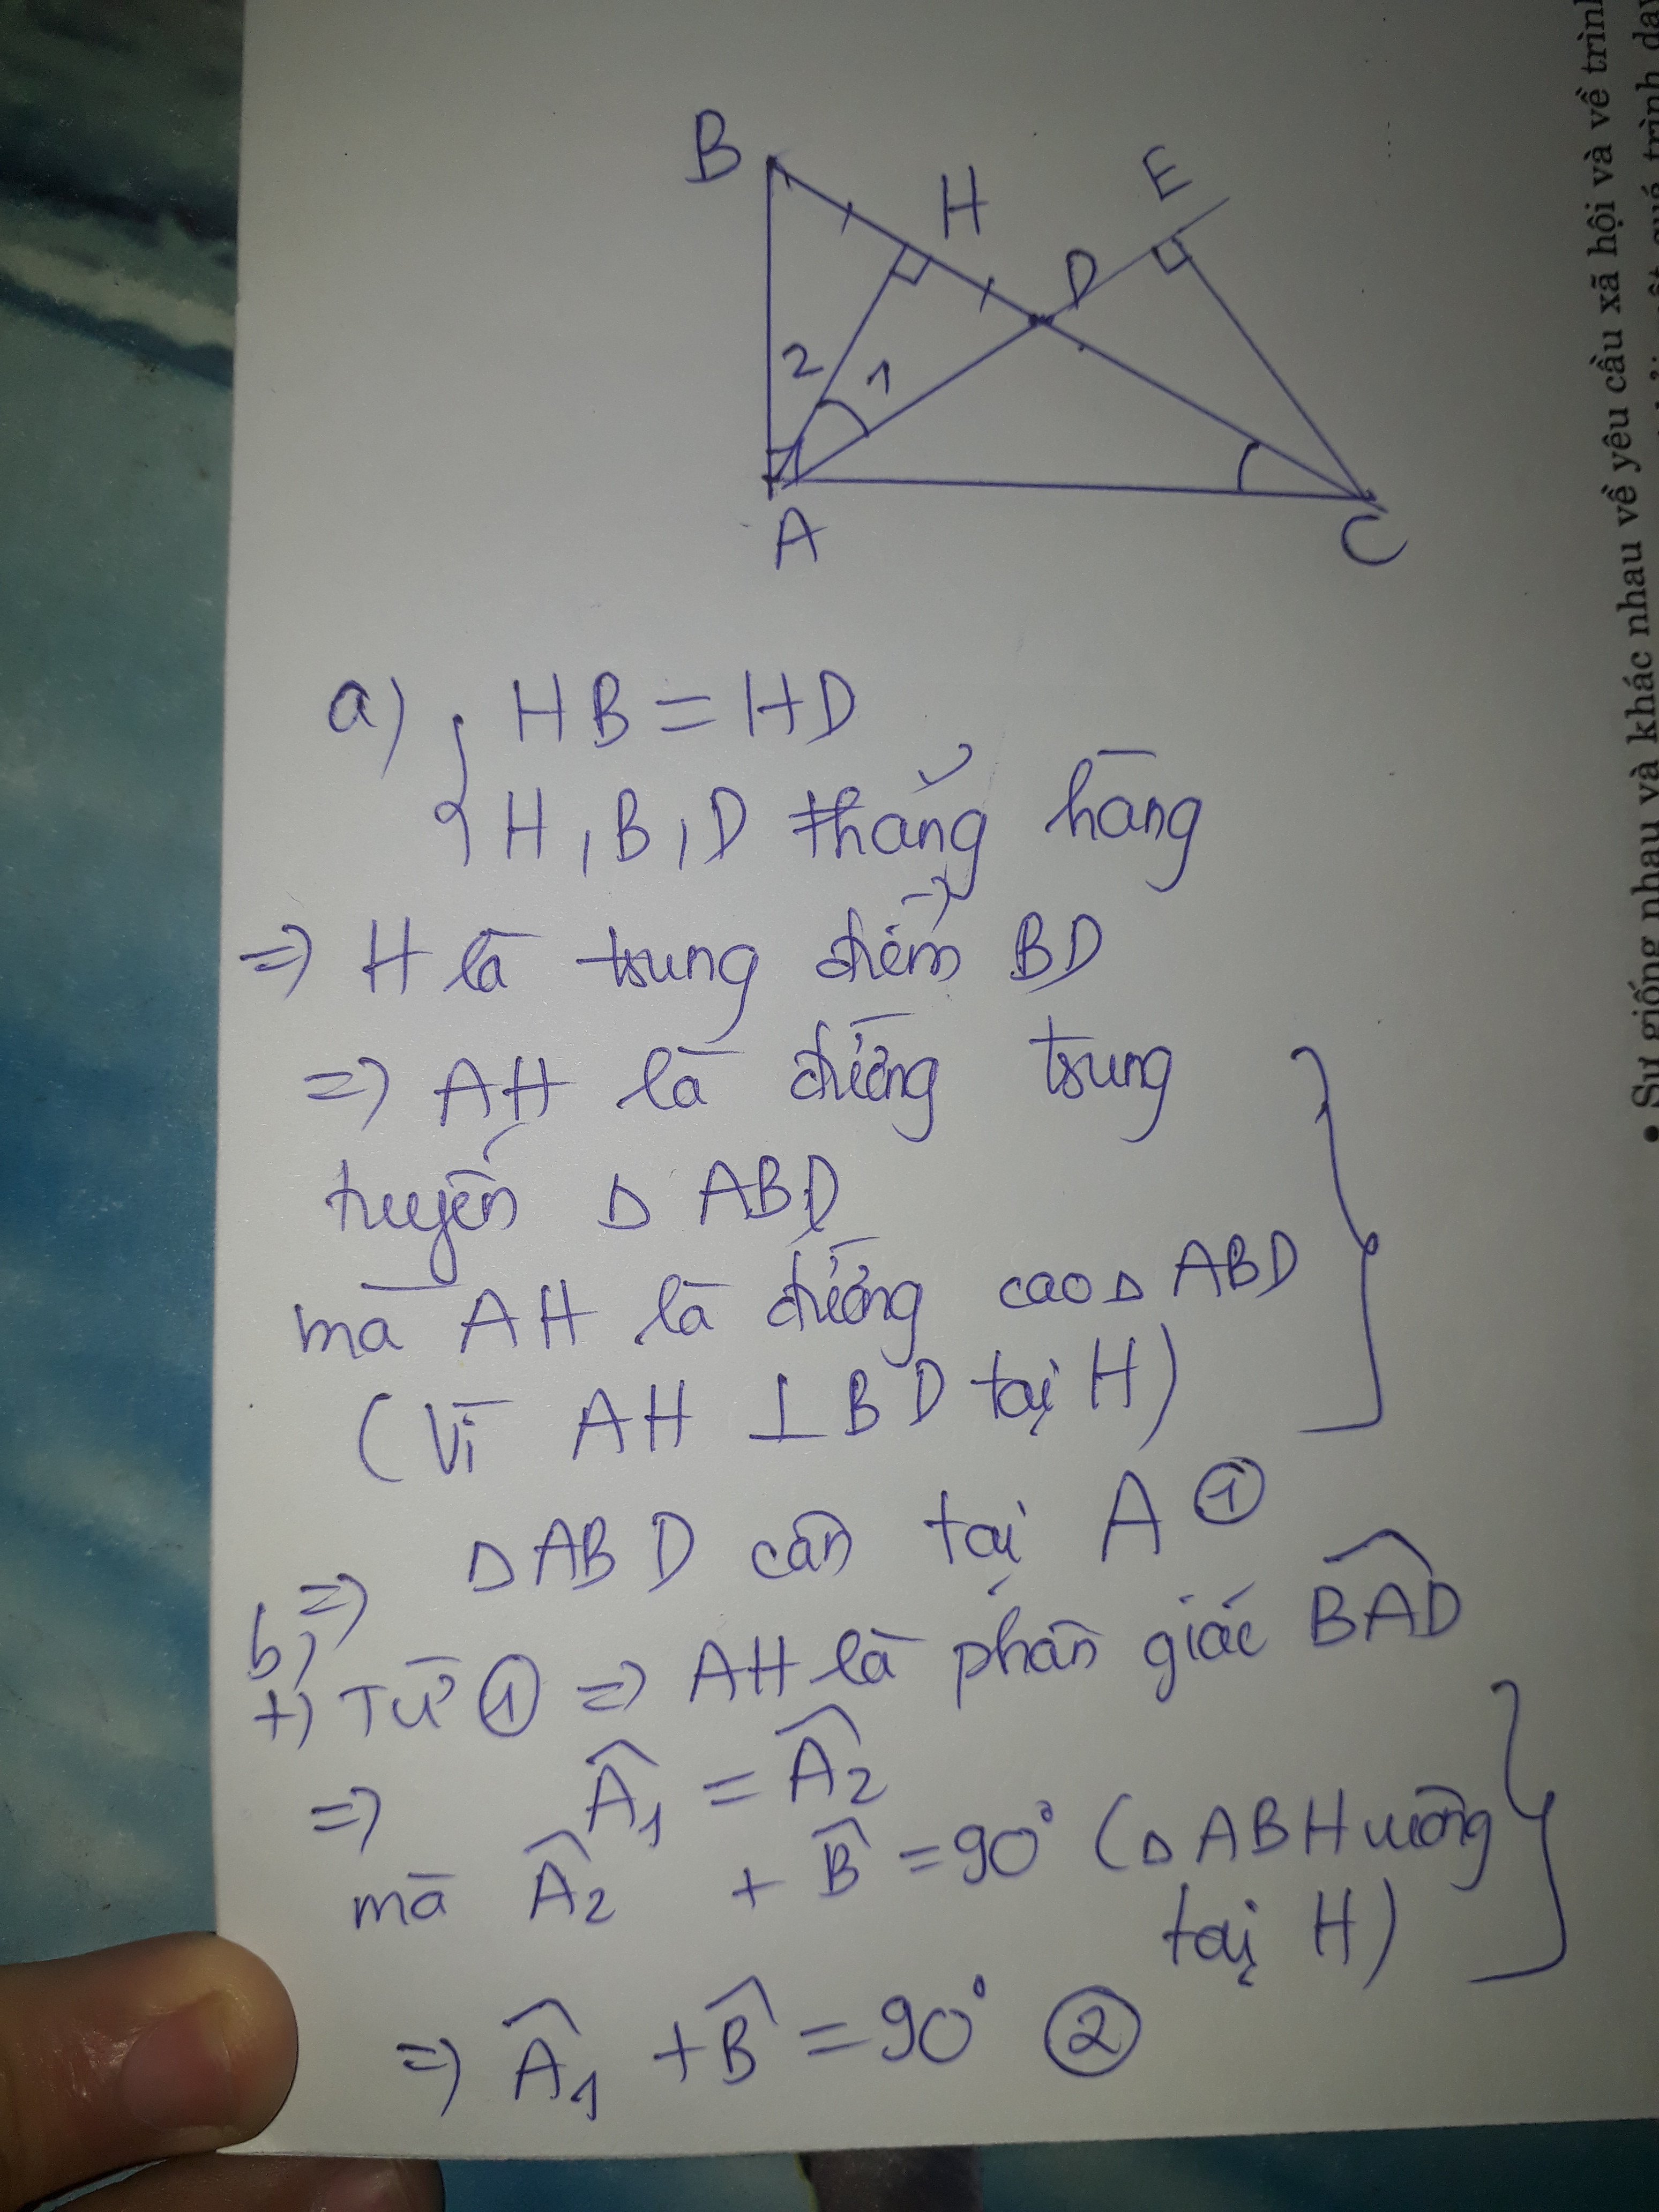 B
H
E
D
2
1
A
C
a) { HB = HD
H, B, D thẳng hàng
=> H là trung điểm BD
=> AH là đường trung
tuyến Δ ABD
mà AH là đường cao Δ ABD
(Vì AH ⊥ BD tại H)
=> Δ ABD cân tại A ①
b,
+) Từ ① => AH là phân giác \widehat{BAD}
=> \widehat{A}₁ = \widehat{A}₂
mà \widehat{A}₂ + \widehat{B} = 90° (Δ ABH vuông
tại H)
=> \widehat{A}₁ + \widehat{B} = 90° ②
• Sự giống nhau và khác nhau về yêu cầu xã hội và về trình